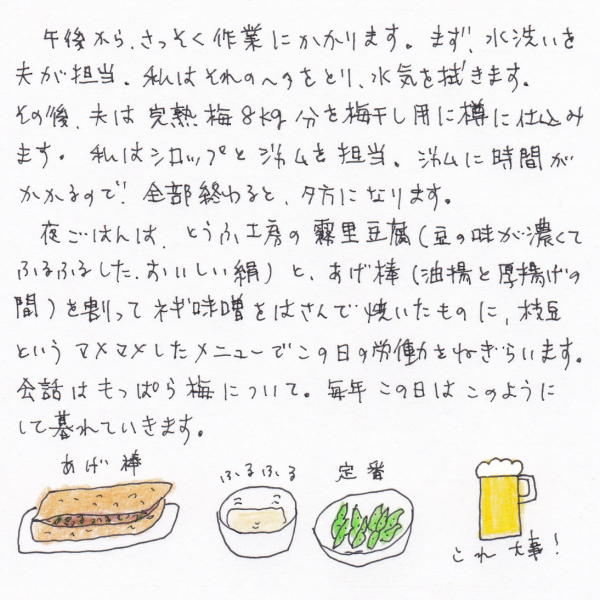 午後から、さっそく作業にかかります。まず、水洗いを
夫が担当。私はそれのヘタをとり、水気を拭きます。
その後、夫は完熟梅8kg分を梅干し用に樽に仕込み
ます。私はシロップとジャムを担当。ジャムに時間が
かかるので、全部終わると、夕方になります。
夜ごはんは、とうふ工房の霧里豆腐(豆の味が濃くて
ふるふるした、おいしい絹)と、あげ棒(油揚と厚揚げの
間)を割ってネギ味噌をはさんで焼いたものに、枝豆
というマメマメしたメニューでこの日の労働をねぎらいます。
会話はもっぱら梅について。毎年この日はこのように
して暮れていきます。
あげ棒
ふるふる
定番
これ大事!